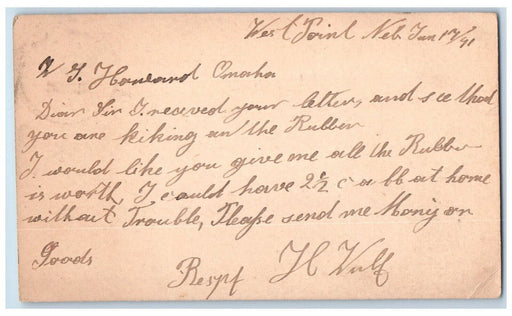 West Point Neb Jan 17/91
Howard Omaha
Diar Sir I receved your letter, and see that
you are kiking an the Rubber
I would like you give me all the Rubber
is worth, I could have 2½ c a lb at home
without Trouble, Please send me Mony or
Goods
Respf H Wulf